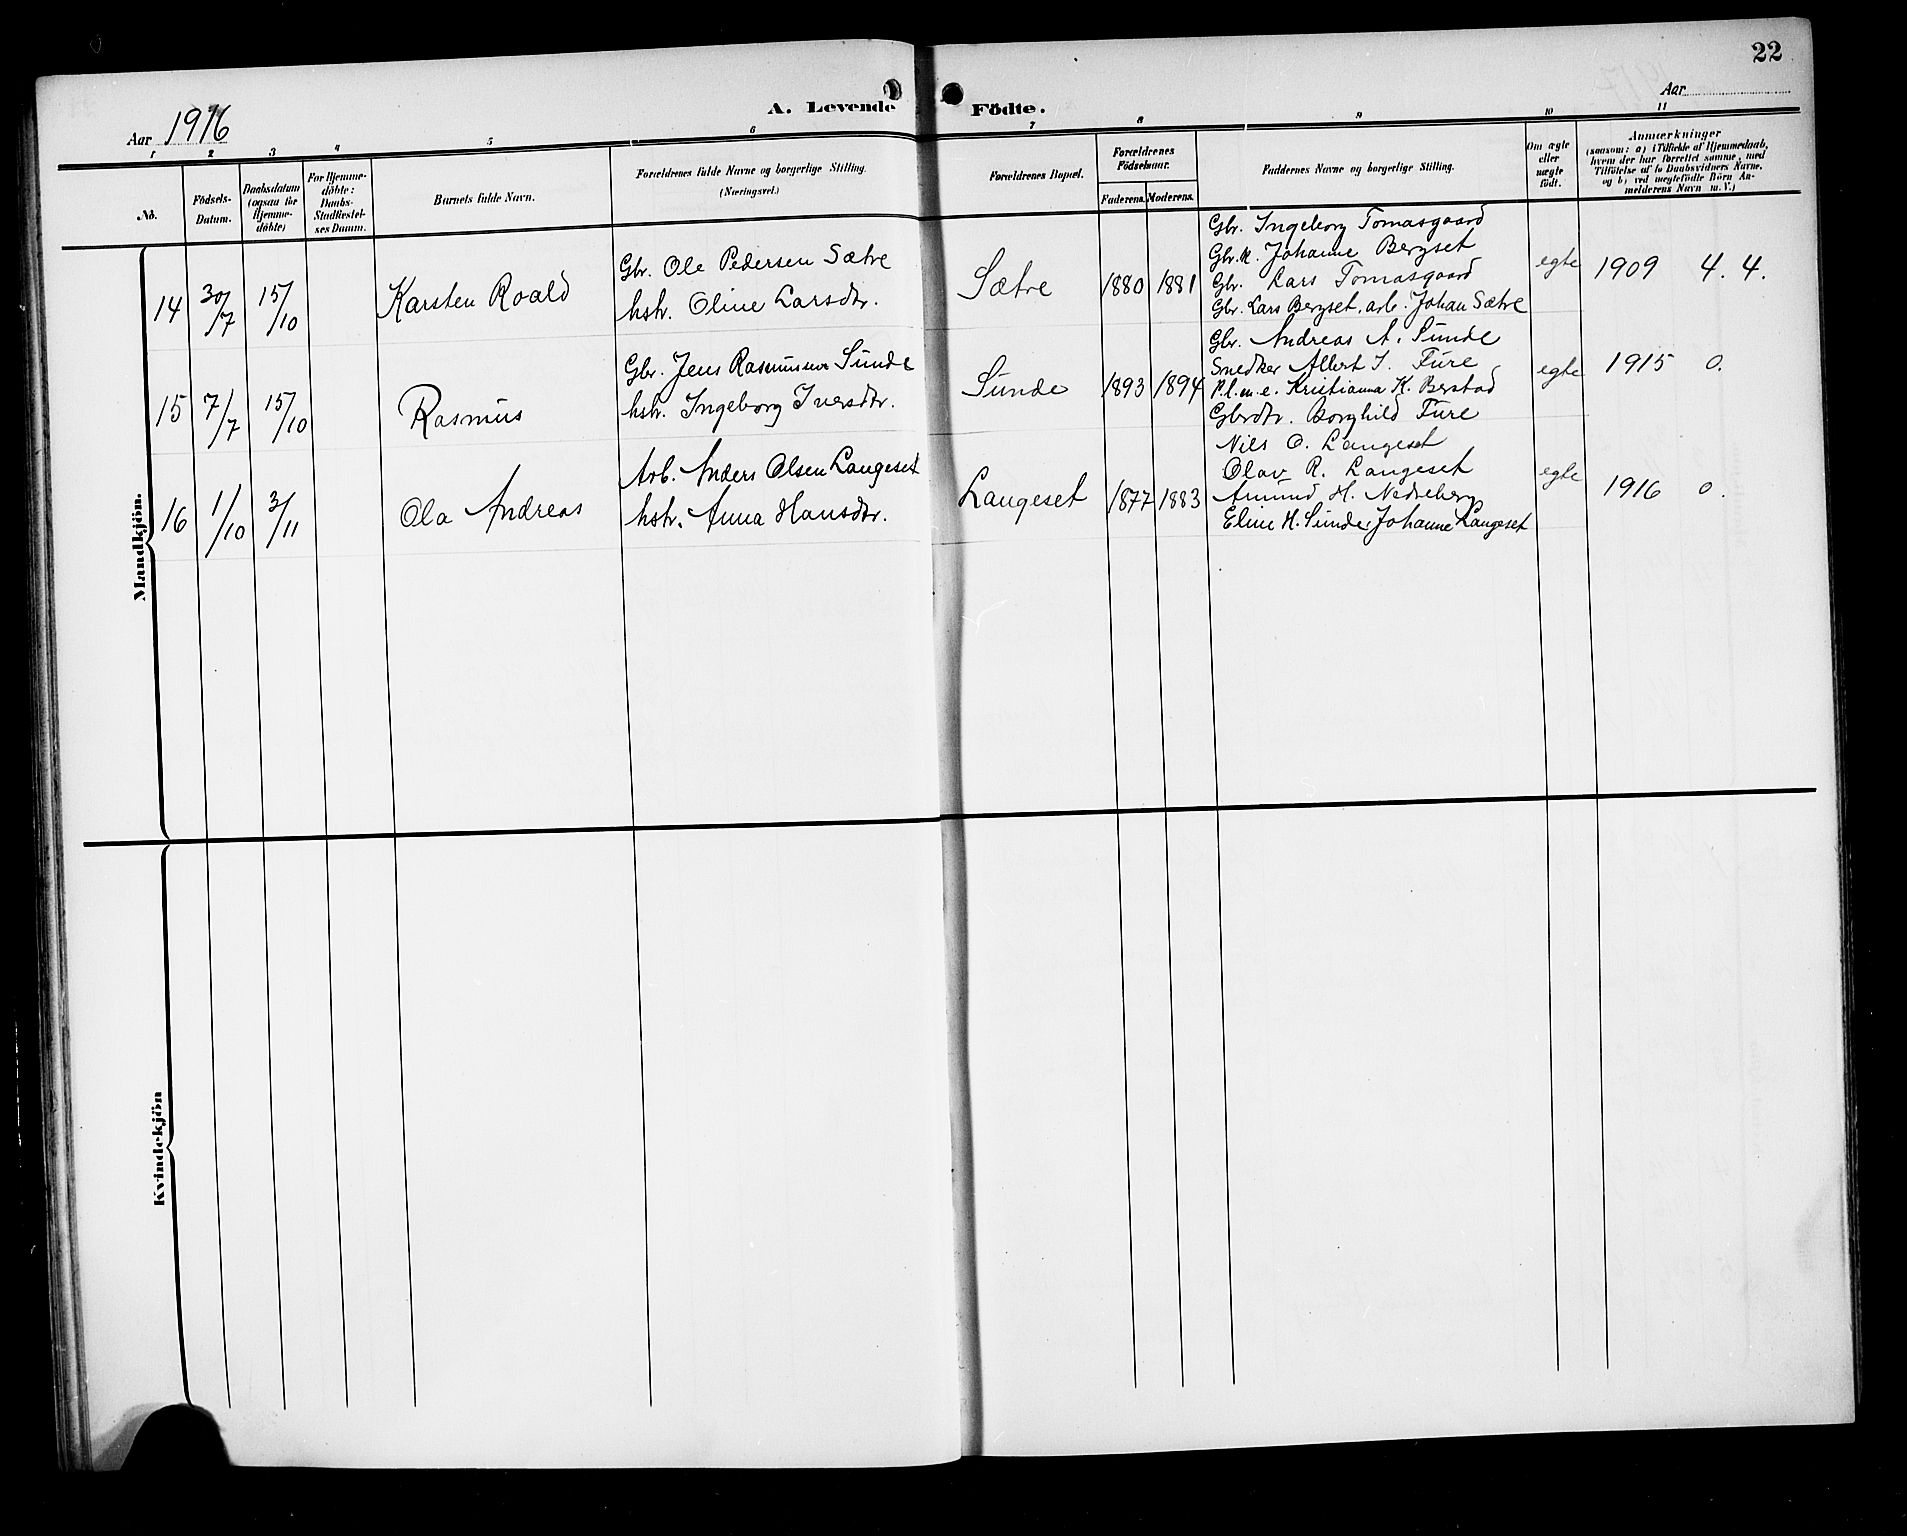 22
A. Levende Födte.
Aar 1916
Aar
1 2 3 4 5 6 7 8 9 10 11
No.
Födsels-Datum.
Daabsdatum (ogsaa for Hjemme-döbte)
For Hjemme-döbte: Daabs-Stadfæstel-ses Datum.
Barnets fulde Navn.
Forældrenes fulde Navne og borgerlige Stilling. (Næringsvei.)
Forældrenes Bopæl.
Forældrenes Födselsaar.
Faderens. Moderens.
Faddernes Navne og borgerlige Stilling.
Om ægte eller uægte födt.
Anmærkninger
(saasom: a) i Tilfælde af Hjemmedaab, hvem der har forrettet samme, med Tilföielse af to Daabsvidners Navne, og b) ved uægtefödte Börn Anmelderens Navn m. V.)
Mandkjön.
14 30/7 15/10 Karsten Roald
Gbr. Ole Pedersen Sætre
hstr. Oline Larsdtr.
Sætre 1880 1881
Gbr. Ingeborg Tomasgaard
Gbr.k. Johanne Bergset
Gbr. Lars Tomasgaard
Gbr. Lars Bergset, arb. Johan Sætre
egte 1909 4. 4.
15 7/7 15/10 Rasmus
Gbr. Jens Rasmussen Sunde
hstr. Ingeborg Iversdtr.
Sunde 1893 1894
Gbr. Andreas A. Sunde
Snedker Albert I. Fure
P.l.m.e. Kristianna K. Berstad
Gbrdtr. Borghild Fure
egte 1915 0.
16 1/10 3/11 Ola Andreas
Arb. Anders Olsen Langeset
hstr. Anna Hansdtr.
Langeset 1877 1883
Nils O. Langeset
Olav R. Langeset
Amund H. Nedreberg
Eline H. Sunde, Johanne Langeset
egte 1916 0.
Kvindekjön